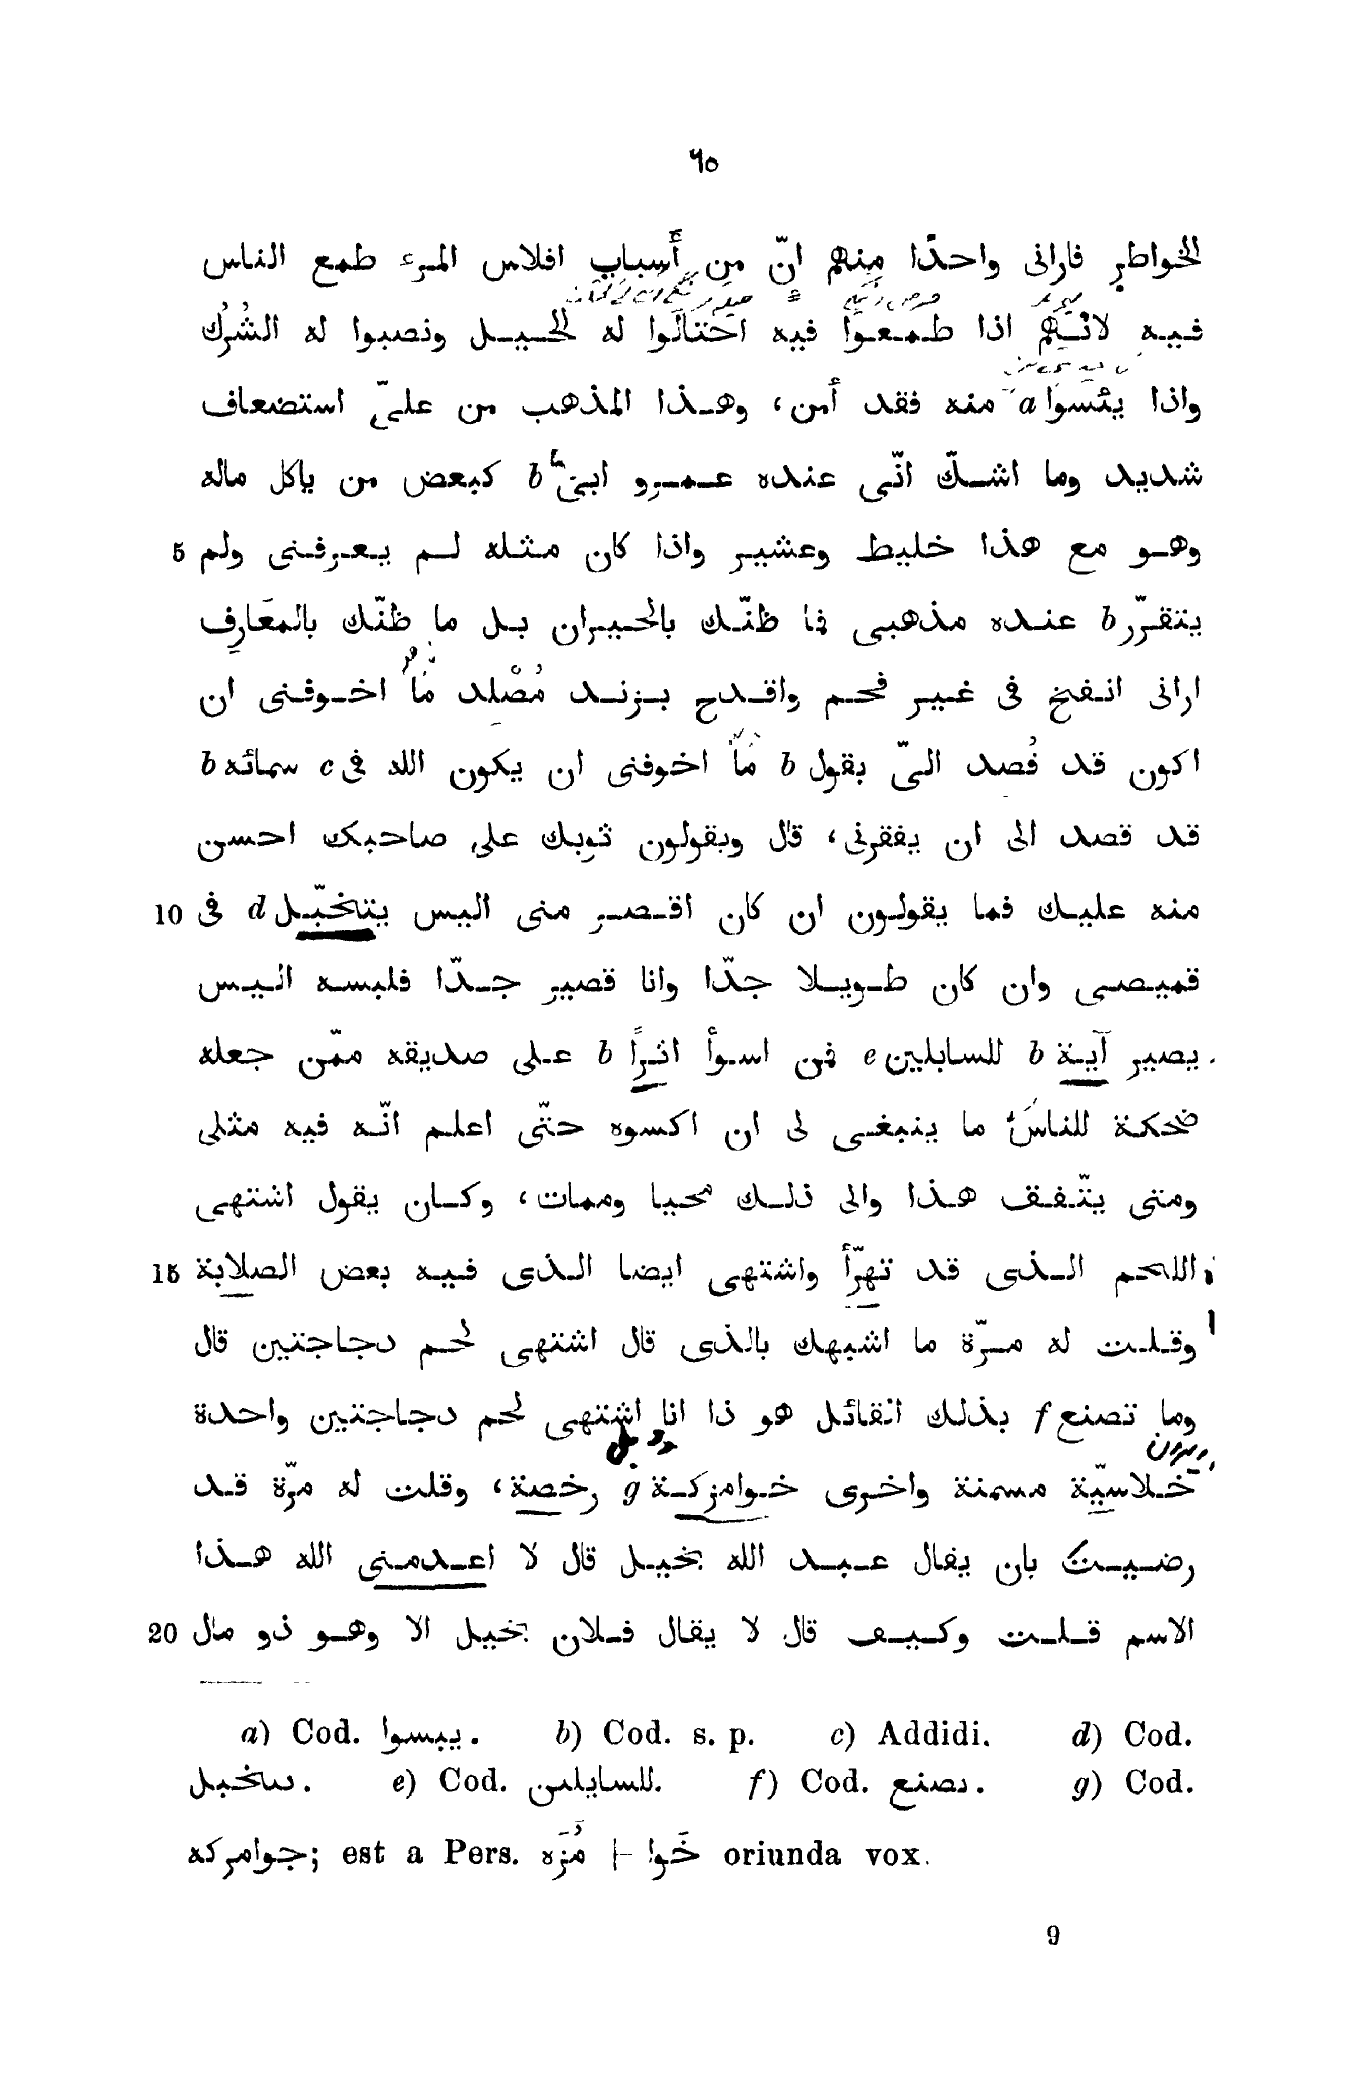 ٦٥
الخواطر فارانى واحدًا منهم انّ من أسباب افلاس المرء طمع الناس
فيه لانّهم اذا طمعوا فيه احتالوا له الحيل ونصبوا له الشُرُك
واذا يئسوا a منه فقد أمن، وهذا المذهب من علىّ استضعاف
شديد وما اشكّ انّى عنده عمرو ابنى b كبعض من ياكل ماله
5 وهو مع هذا خليط وعشير واذا كان مثله لم يعرفنى ولم
يتقرّر b عنده مذهبى فما ظنّك بالجيران بل ما ظنّك بالمعَارِف
ارانى انفخ فى غير فحم واقدح بزند مُصْلد ما اخوفنى ان
اكون قد قُصد الىّ بقول b ما اخوفنى ان يكون الله فى c سمائه b
قد قصد الى ان يفقرنى، قال ويقولون ثوبك على صاحبك احسن
منه عليك فما يقولون ان كان اقصر منى اليس يتخبّل d فى 10
قميصى وان كان طويلا جدّا وانا قصير جدّا فلبسه اليس
يصير آية b للسايلين e فمن اسوأ اثرًا b على صديقه ممّن جعله
ضحكة للناس ما ينبغى لى ان اكسوه حتّى اعلم انّه فيه مثلى
ومتى يتّفق هذا والى ذلك محيا وممات، وكان يقول اشتهى
اللحم الذى قد تهرّأ واشتهى ايضا الذى فيه بعض الصلابة 15
وقلت له مرّة ما اشبهك بالذى قال اشتهى لحم دجاجتين قال
وما تصنع f بذلك القائل هو ذا انا اشتهى لحم دجاجتين واحدة
خلاسيّة مسمنة واخرى خوامزكة g رخصة، وقلت له مرّة قد
رضيت بان يقال عبد الله بخيل قال لا اعدمنى الله هذا
الاسم قلت وكيف قال لا يقال فلان بخيل الا وهو ذو مال 20
a) Cod. ييسوا. b) Cod. s. p. c) Addidi. d) Cod.
. e) Cod. للسايلىں. f) Cod. ىصنع. g) Cod.
جوامركه; est a Pers. خَوا + مُزَه oriunda vox.
9